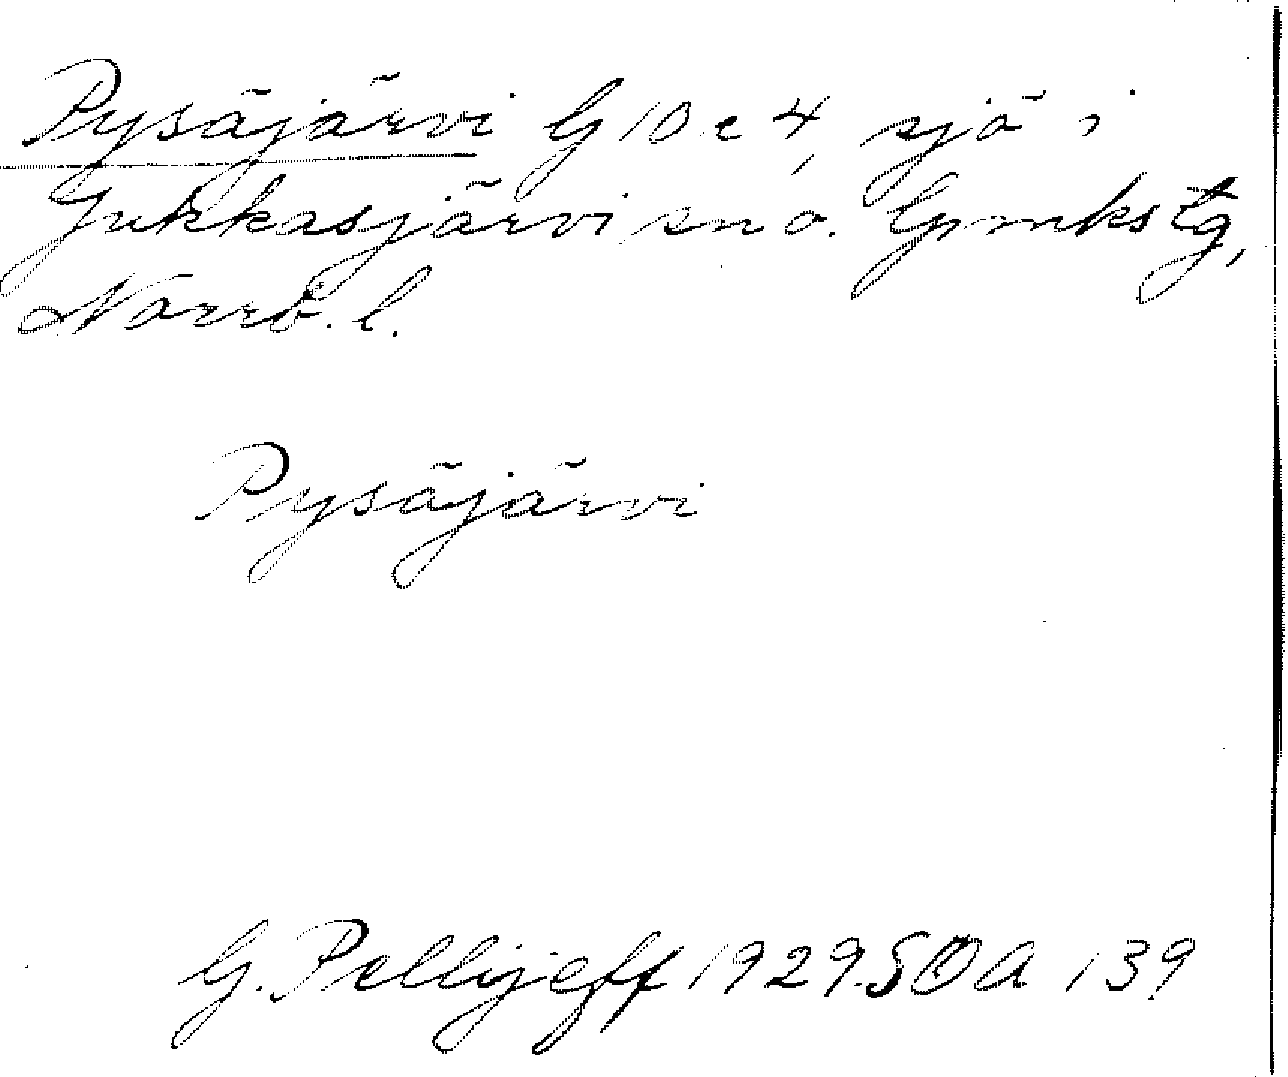 Pysäjärvi G 10 e 4, sjö i
Jukkasjärvi sn o. lpmkstg,
Norrb. l.
Pysäjärvi
G. Pellijeff 1929. SOA 139